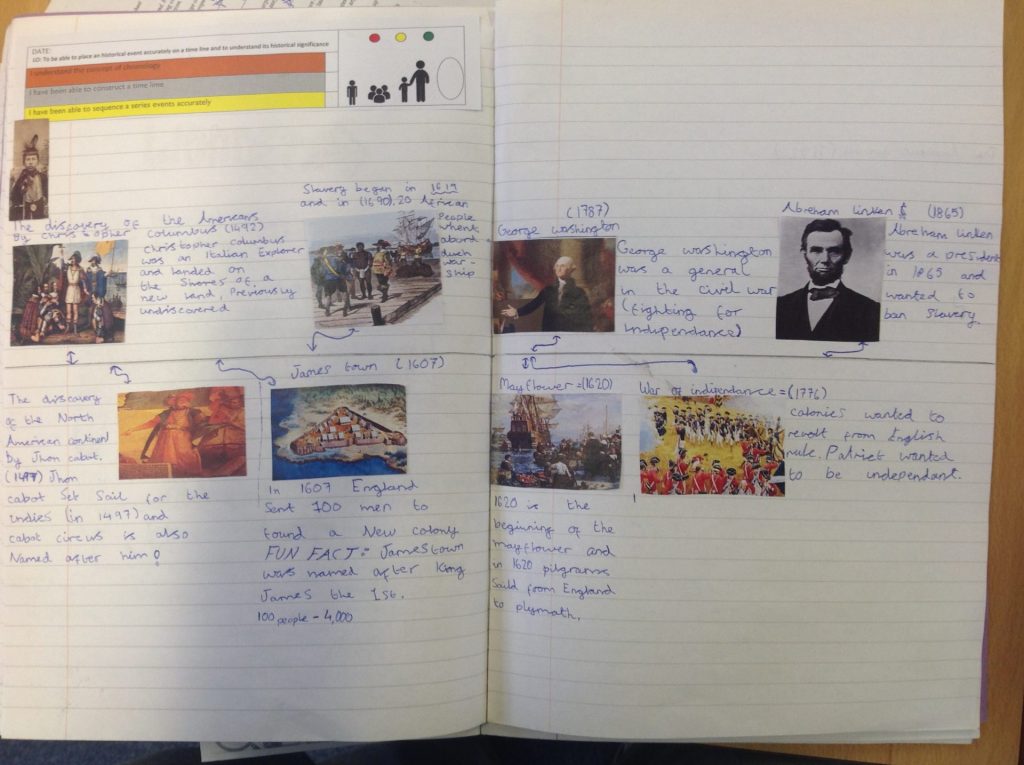 DATE:
LO: To be able to place an historical event accurately on a time line and to understand its historical significance
I understand the concept of chronology
I have been able to construct a time line
I have been able to sequence a series events accurately
The discovery of the Americans
By Christopher Columbus (1492)
Christopher columbus
was an Italian Explorer
and landed on
the Shores of a
new land, Previously
undiscovered
Slavery began in 1619
and in (1690), 20 African
People
whent
abord
duch
war-
ship
(1787)
George washington
George washington
was a general
in the civil war
(fighting for
independance)
Abraham linken (1865)
Abraham linken
was a president
in 1865 and
wanted to
ban Slavery.
The discovery
of the North
American continent
by Jhon cabot.
(1497) Jhon
cabot Set Sail for the
indies (in 1497) and
cabot circus is also
Named after him!
James town (1607)
In 1607 England
Sent 100 men to
found a New colony
FUN FACT:- Jamestown
was named after King
James the 1st.
100 people - 4,000
Mayflower =(1620)
1620 is the
beginning of the
mayflower and
in 1620 pilgrams
Saild from England
to plymath.
War of indipendance = (1776)
colonies wanted to
revolt from English
rule. Patriet wanted
to be independant.